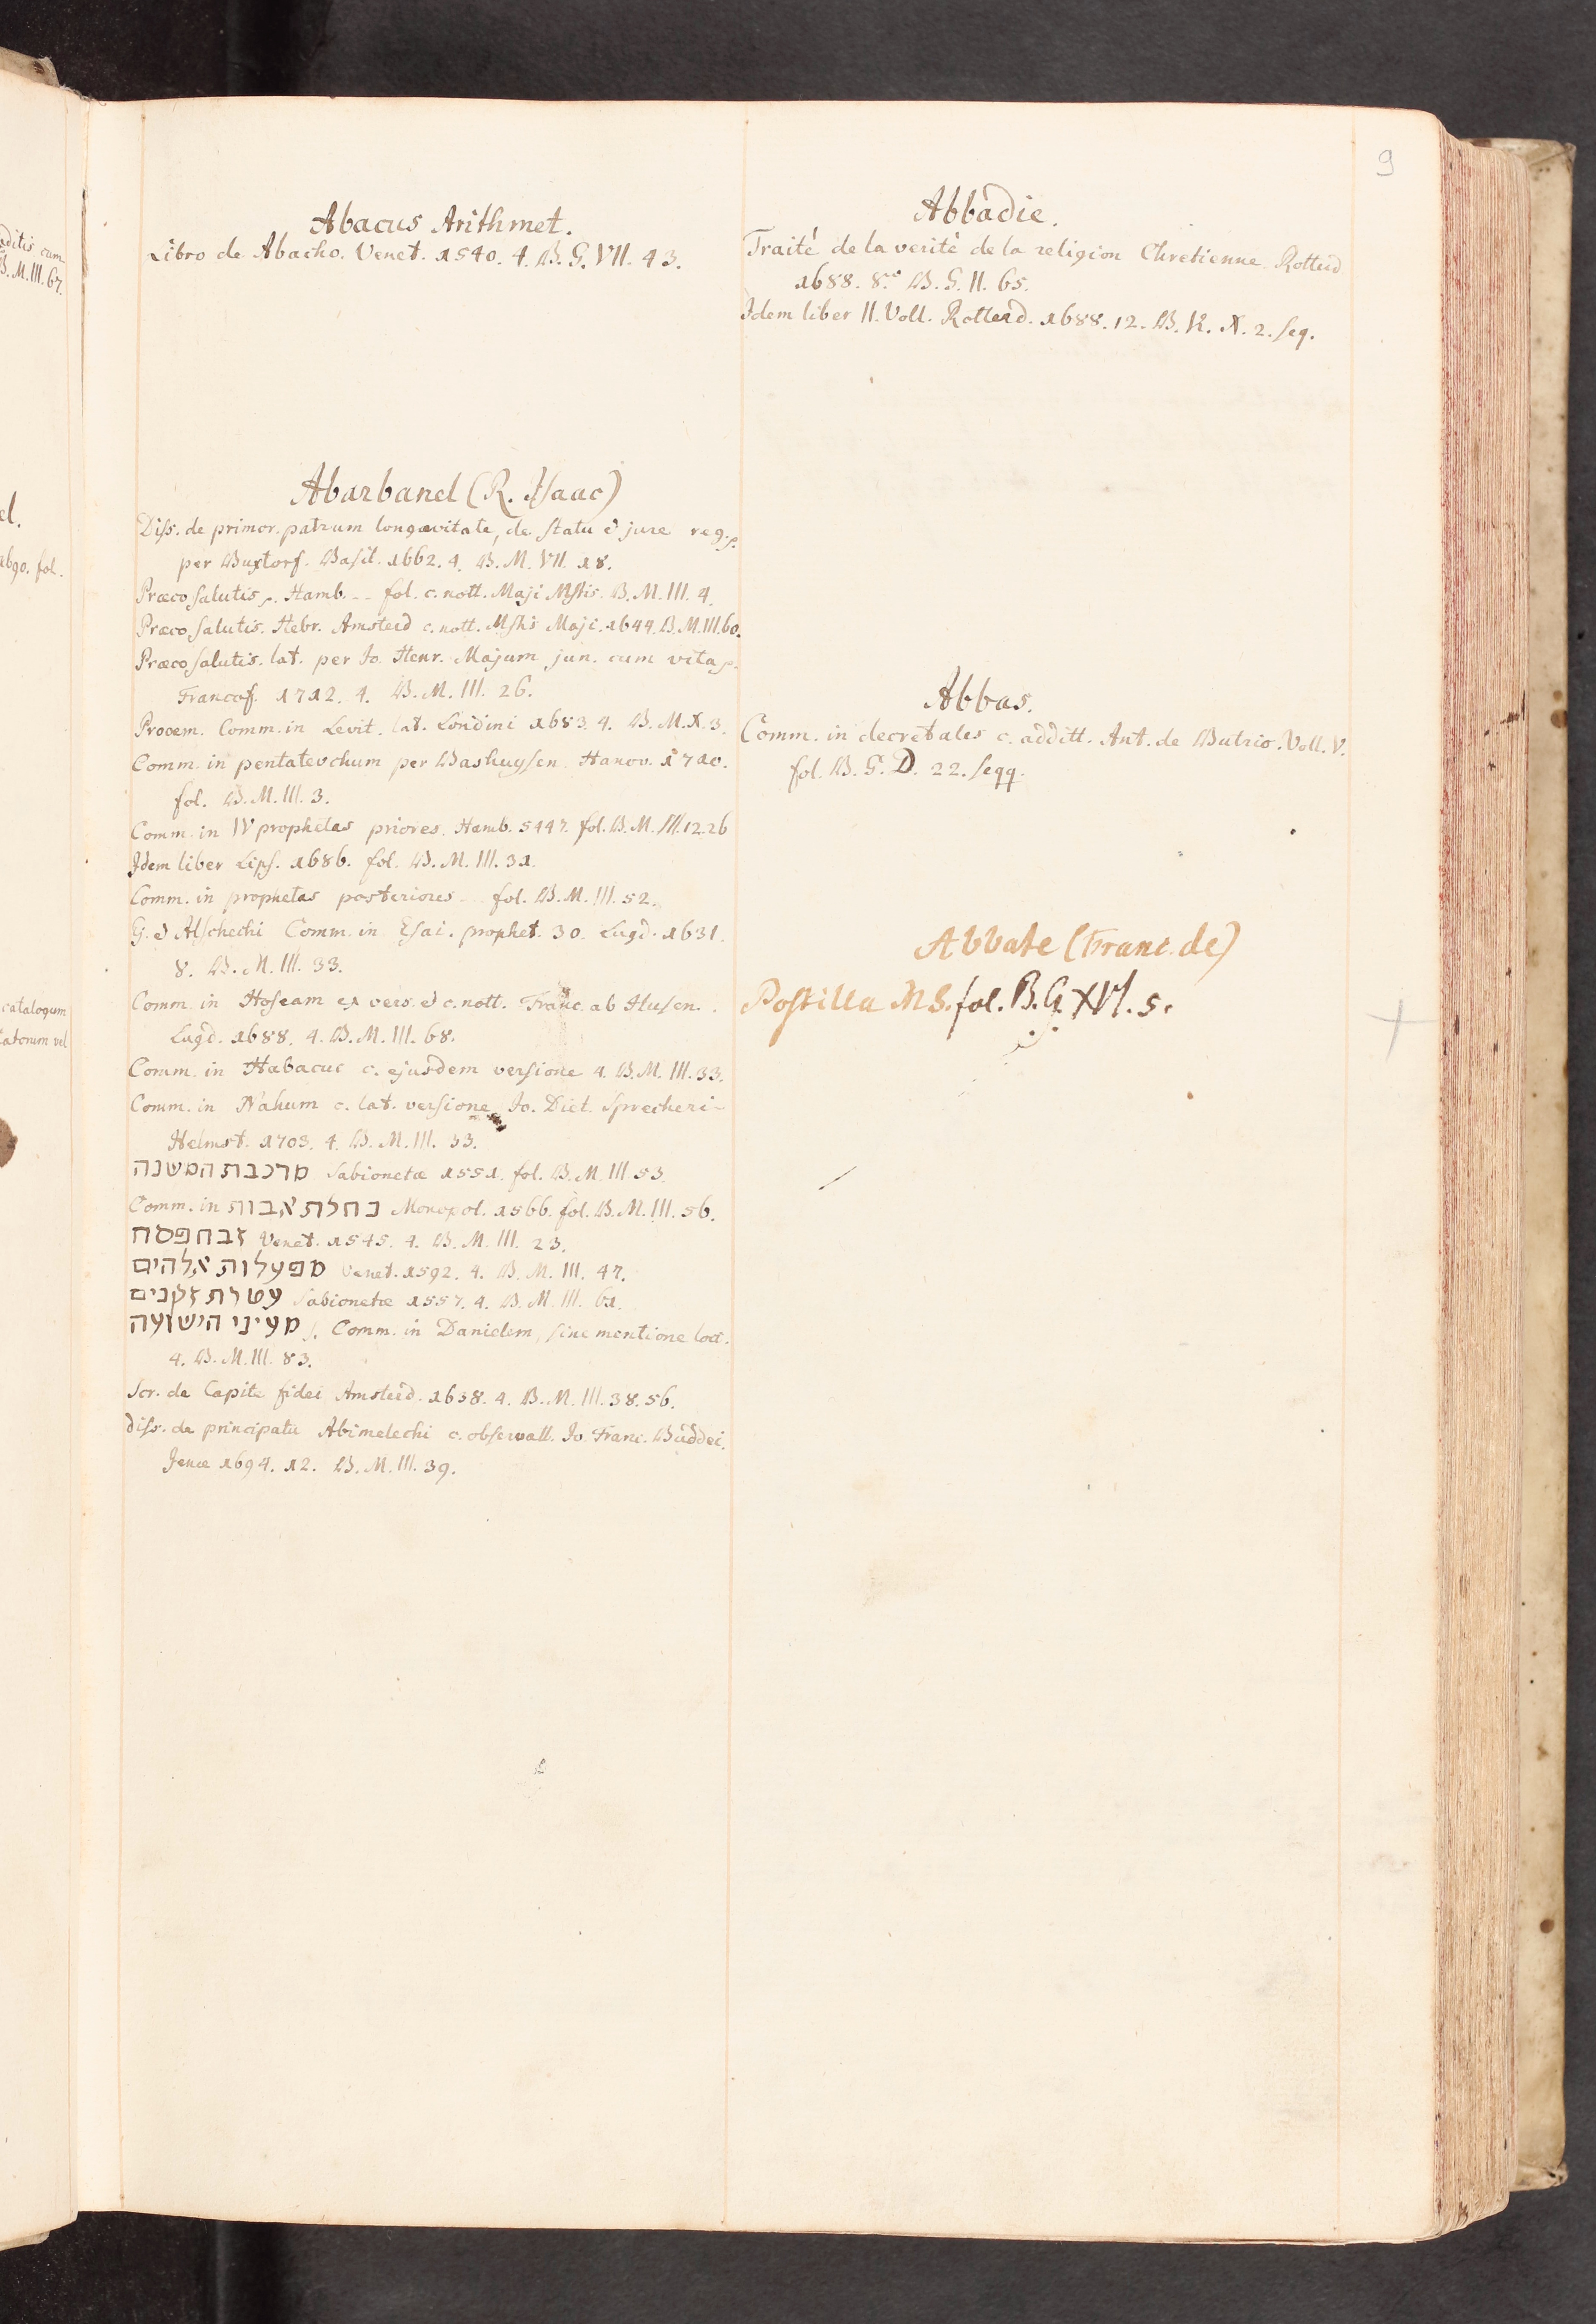 9
Abacus Arithmet.
Libro de Abacho. Venet. 1540. 4. B. G. VII. 43.
Abarbanel (R. Isaac)
Diss. de primor. patrum longævitate, de statu & jure reg.
per Buxtorf. Basil. 1662. 4. B. M. VII. 18.
Præco salutis. Hamb. -- fol. c. nott. Maji Mstis. B. M. III. 4.
Præco salutis. Hebr. Amsterd c. nott. Mstis Maji. 1644. B. M. III. 60.
Præco salutis. lat. per Jo. Henr. Majum jun. cum vita
Francof. 1712. 4. B. M. III. 26.
Prooem. Comm. in Levit. lat. Londini 1683. 4. B. M. X. 3.
Comm. in pentatevchum per Bashuysen. Hanov. 1710.
fol. B. M. III. 3.
Comm. in IV prophetas priores. Hamb. 5447. fol. B. M. III. 12. 26
Idem liber Lips. 1686. fol. B. M. III. 31.
Comm. in prophetas posteriores -- fol. B. M. III. 52.
G. & Alschechi Comm. in Esai. prophet. 30. Lugd. 1631.
8. B. M. III. 33.
Comm. in Hoseam ex vers. & c. nott. Franc. ab Husen.
Lugd. 1688. 4. B. M. III. 68.
Comm. in Habacuc c. ejusdem versione 4. B. M. III. 33.
Comm. in Nahum c. lat. versione Jo. Diet. Sprecheri-
Helmst. 1703. 4. B. M. III. 33.
מרכבת המשנה Sabionetæ 1551. fol. B. M. III. 53.
Comm. in נחלת אבות Monopol. 1566. fol. B. M. III. 56.
זבח פסח Venet. 1545. 4. B. M. III. 23.
מפעלות אלהים Venet. 1592. 4. B. M. III. 47.
עטרת זקנים Sabionetæ 1557. 4. B. M. III. 61.
מעיני הישועה s. Comm. in Danielem, sine mentione loci.
4. B. M. III. 83.
Scr. de Capite fidei Amsterd. 1638. 4. B. M. III. 38. 56.
diss. de principatu Abimelechi c. observatt. Jo. Franc. Buddei.
Jenæ 1694. 12. B. M. III. 39.
Abbadie.
Traité de la verité de la religion Chretienne. Rotterd
1688. 8.º B. G. II. 65.
Idem liber II. Voll. Rotterd. 1688. 12. B. K. X. 2. seq.
Abbas.
Comm. in decretales c. additt. Ant. de Butrio. Voll. V.
fol. B. G. D. 22. seqq.
Abbate (Franc. de)
Postilla MS. fol. B. G. XVI. 5.